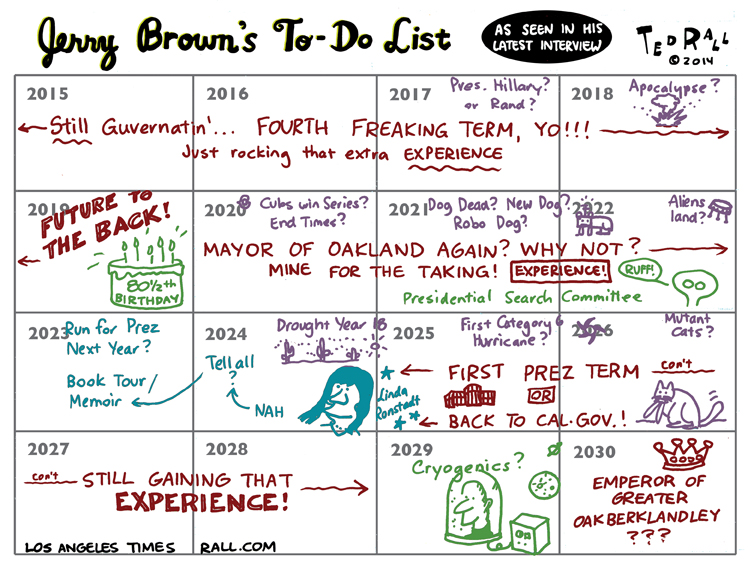 Jerry Brown's To-Do List
AS SEEN IN HIS
LATEST INTERVIEW
TED RALL
©2014
2015
2016
2017
Pres. Hillary?
or Rand?
2018
Apocalypse?
Still Guvernatin'... FOURTH FREAKING TERM, YO!!!
Just rocking that extra EXPERIENCE
2019
FUTURE TO
THE BACK!
80½th
BIRTHDAY
2020
Cubs win Series?
End Times?
2021
Dog Dead? New Dog?
Robo Dog?
2022
Aliens
land?
MAYOR OF OAKLAND AGAIN? WHY NOT?
MINE FOR THE TAKING! EXPERIENCE!
RUFF!
Presidential Search Committee
2023
Run for Prez
Next Year?
Book Tour/
Memoir
2024
Tell all
?
NAH
Drought Year 18
Linda
Ronstadt
2025
First Category 6
Hurricane?
2026
Mutant
Cats?
FIRST PREZ TERM con't
OR
BACK TO CAL. GOV.!
2027
2028
con't STILL GAINING THAT
EXPERIENCE!
2029
Cryogenics?
2030
EMPEROR OF
GREATER
OAKBERKLANDLEY
???
LOS ANGELES TIMES RALL.COM